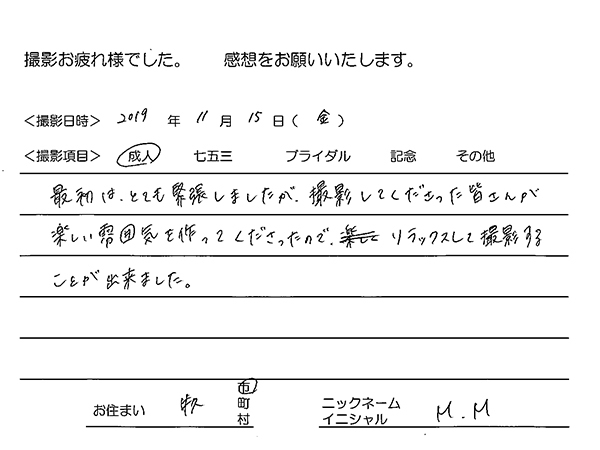 撮影お疲れ様でした。 感想をお願いいたします。
<撮影日時> 2019 年 11 月 15 日( 金 )
<撮影項目> 成人 七五三 ブライダル 記念 その他
最初は、とても緊張しましたが、撮影してくださった皆さんが
楽しい雰囲気を作ってくださったので、リラックスして撮影する
ことが出来ました。
お住まい 市
町
村
ニックネーム
イニシャル M.M